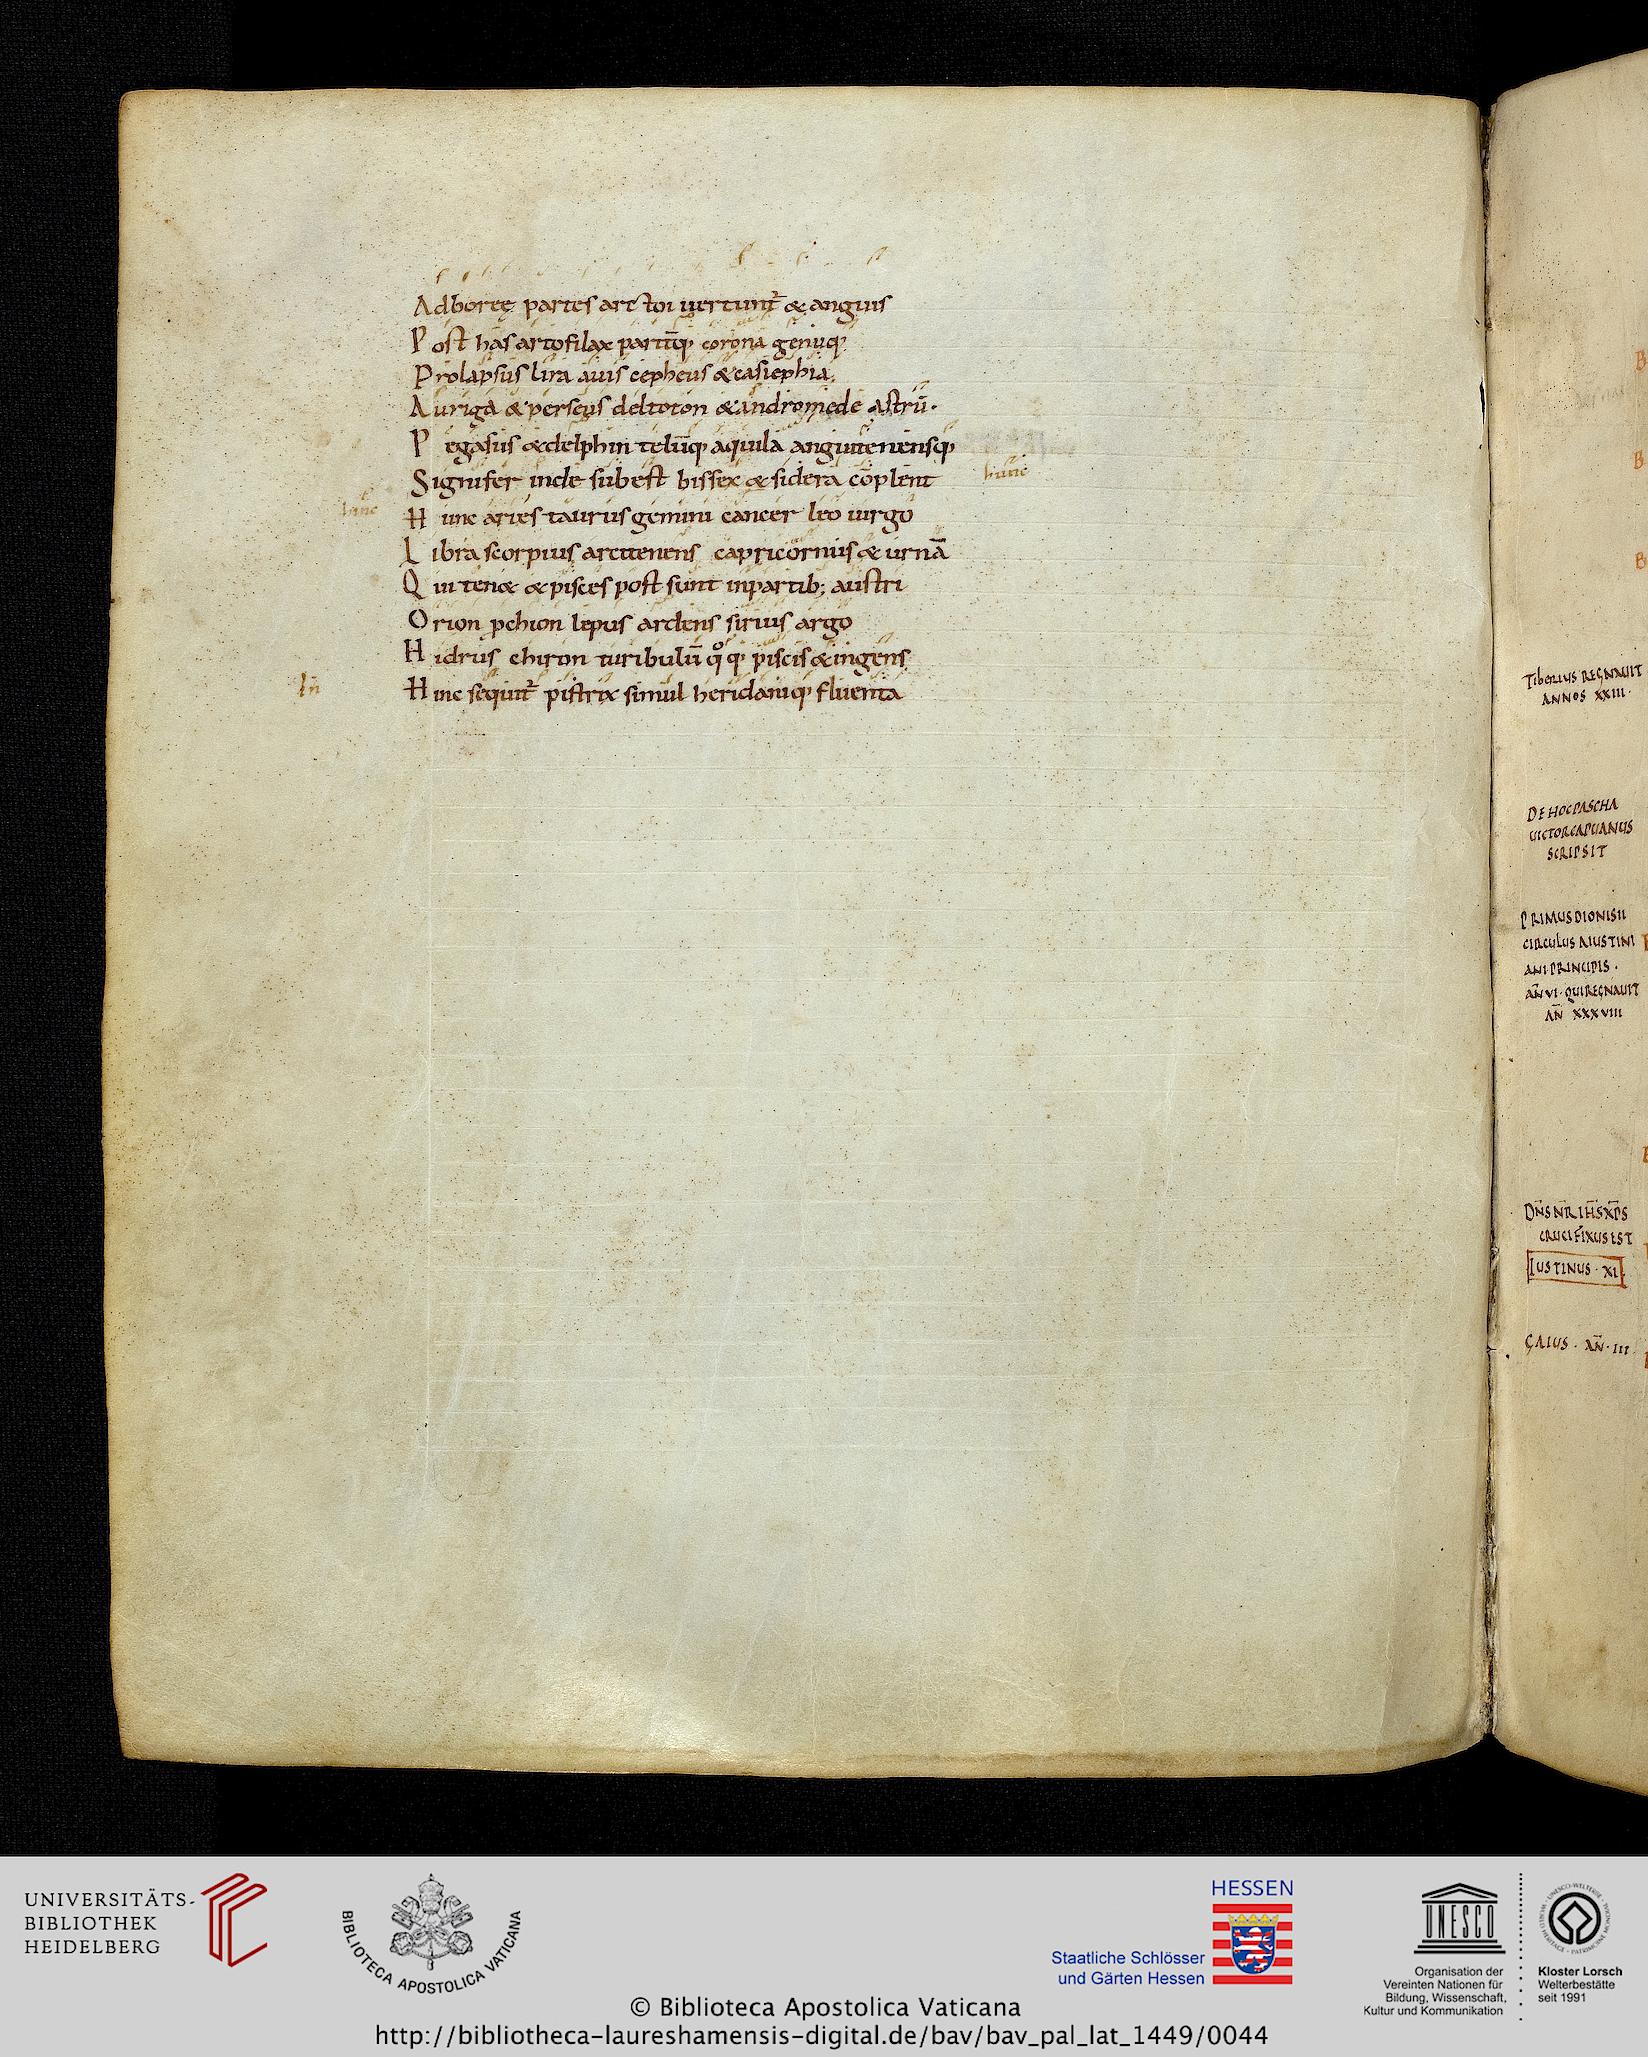 Adboreę partes arctoi uertunt̄ & anguis
Post has artofilax paritq; corona geniq;
Prolapsus lira auis cepheus & casiephia.
Auriga & perseus deltoton & andromede astrū.
Pegasus & delphin telūq; aquila anguitenensq;
Signifer inde subest bissex & sidera cōplent
hunc
hunc
Hunc aries taurus gemini cancer leo uirgo
Libra scorpius arcitenens capricornus & urnā
Qui tenǽ & pisces post sunt inpartib; austri
Orion pchion lepus ardens sirius argo
Hidrus chiron turibulū qͦq; piscis & ingens
Hinc sequnt̄ pistrix simul heridaniq; fluenta
Tiberius REGNAUIT
ANNOS XXIII.
DE HOC PASCHA
UICTOR CAPUANUS
SCRIPSIT
PRIMUS DIONISII
CIRCULUS AIUSTINI
ANI PRINCIPIS.
AN̄ VI. QUI REGNAUIT
AN̄ XXXVIII
DN̄S NR̄ IH̄S XP̄S
CRUCIFIXUS EST
IUSTINUS. XI.
GAIUS. AN̄. III
UNIVERSITÄTS-
BIBLIOTHEK
HEIDELBERG
BIBLIOTECA APOSTOLICA VATICANA
HESSEN
Staatliche Schlösser
und Gärten Hessen
UNESCO
Organisation der
Vereinten Nationen für
Bildung, Wissenschaft,
Kultur und Kommunikation
Kloster Lorsch
Welterbestätte
seit 1991
© Biblioteca Apostolica Vaticana
http://bibliotheca-laureshamensis-digital.de/bav/bav_pal_lat_1449/0044